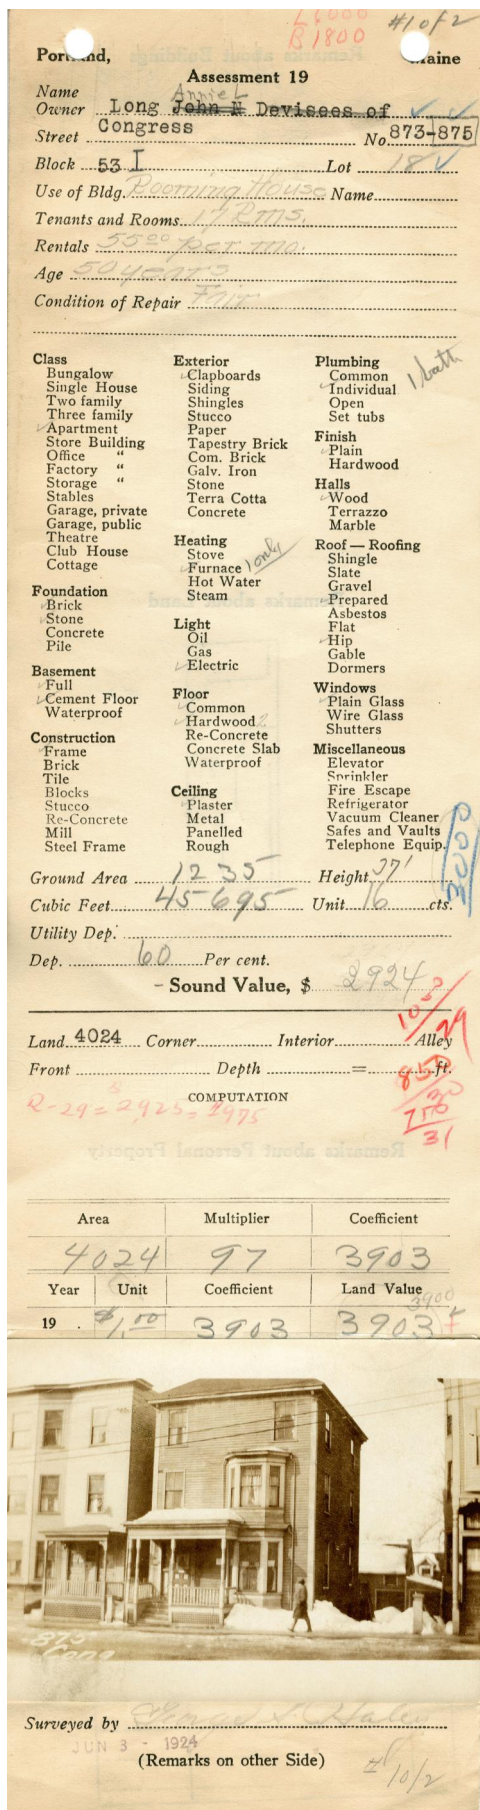 L 6000 #1 of 2
B 1800
Portland, Maine
Assessment 19
Name Annie L
Owner Long John N Devisees of
Street Congress No. 873-875
Block 53 I Lot 18
Use of Bldg. Rooming House Name
Tenants and Rooms 17 Rms.
Rentals 55.00 per mo.
Age 50 years
Condition of Repair Fair
Class
Bungalow
Single House
Two family
Three family
Apartment
Store Building
Office "
Factory "
Storage "
Stables
Garage, private
Garage, public
Theatre
Club House
Cottage
Foundation
Brick
Stone
Concrete
Pile
Basement
Full
Cement Floor
Waterproof
Construction
Frame
Brick
Tile
Blocks
Stucco
Re-Concrete
Mill
Steel Frame
Exterior
Clapboards
Siding
Shingles
Stucco
Paper
Tapestry Brick
Com. Brick
Galv. Iron
Stone
Terra Cotta
Concrete
Heating
Stove
Furnace 1 only
Hot Water
Steam
Light
Oil
Gas
Electric
Floor
Common
Hardwood 2
Re-Concrete
Concrete Slab
Waterproof
Ceiling
Plaster
Metal
Panelled
Rough
Plumbing
Common 1 bath
Individual
Open
Set tubs
Finish
Plain
Hardwood
Halls
Wood
Terrazzo
Marble
Roof — Roofing
Shingle
Slate
Gravel
Prepared
Asbestos
Flat
Hip
Gable
Dormers
Windows
Plain Glass
Wire Glass
Shutters
Miscellaneous
Elevator
Sprinkler
Fire Escape
Refrigerator
Vacuum Cleaner
Safes and Vaults
Telephone Equip.
3000
Ground Area 1235 Height 37'
Cubic Feet 45695 Unit 16 cts.
Utility Dep.
Dep. 60 Per cent.
Sound Value, $ 2924
Land 4024 Corner Interior Alley
Front Depth = ft.
COMPUTATION
850/30
31
Area Multiplier Coefficient
4024 97 3903
Year Unit Coefficient Land Value
3900
19 . $1.00 3903 3903
875
Cong
Surveyed by
JUN 3 - 1924
(Remarks on other Side)
10/2